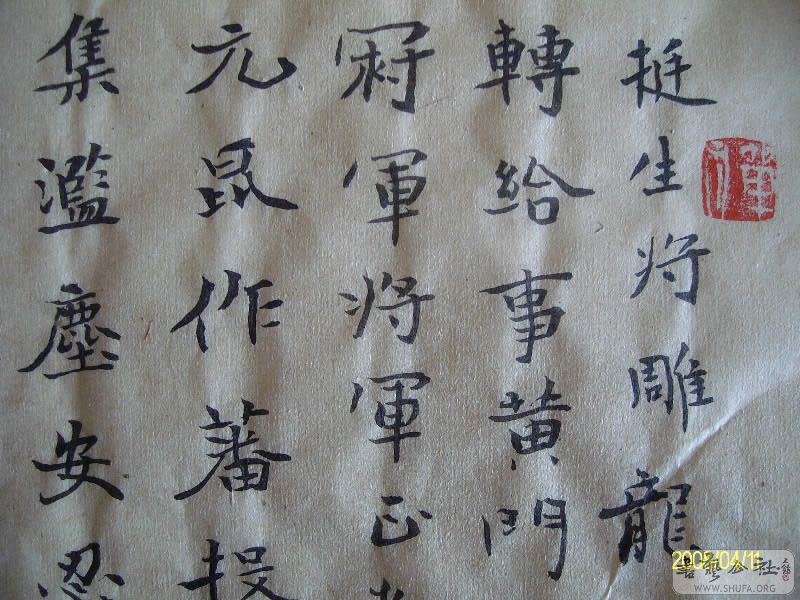 挺生将雕龍
轉給事黄門
冠軍将軍正
元昆作蕃投
集濫塵安忍
2008/04/11
書藝公社
WWW.SHUFA.ORG